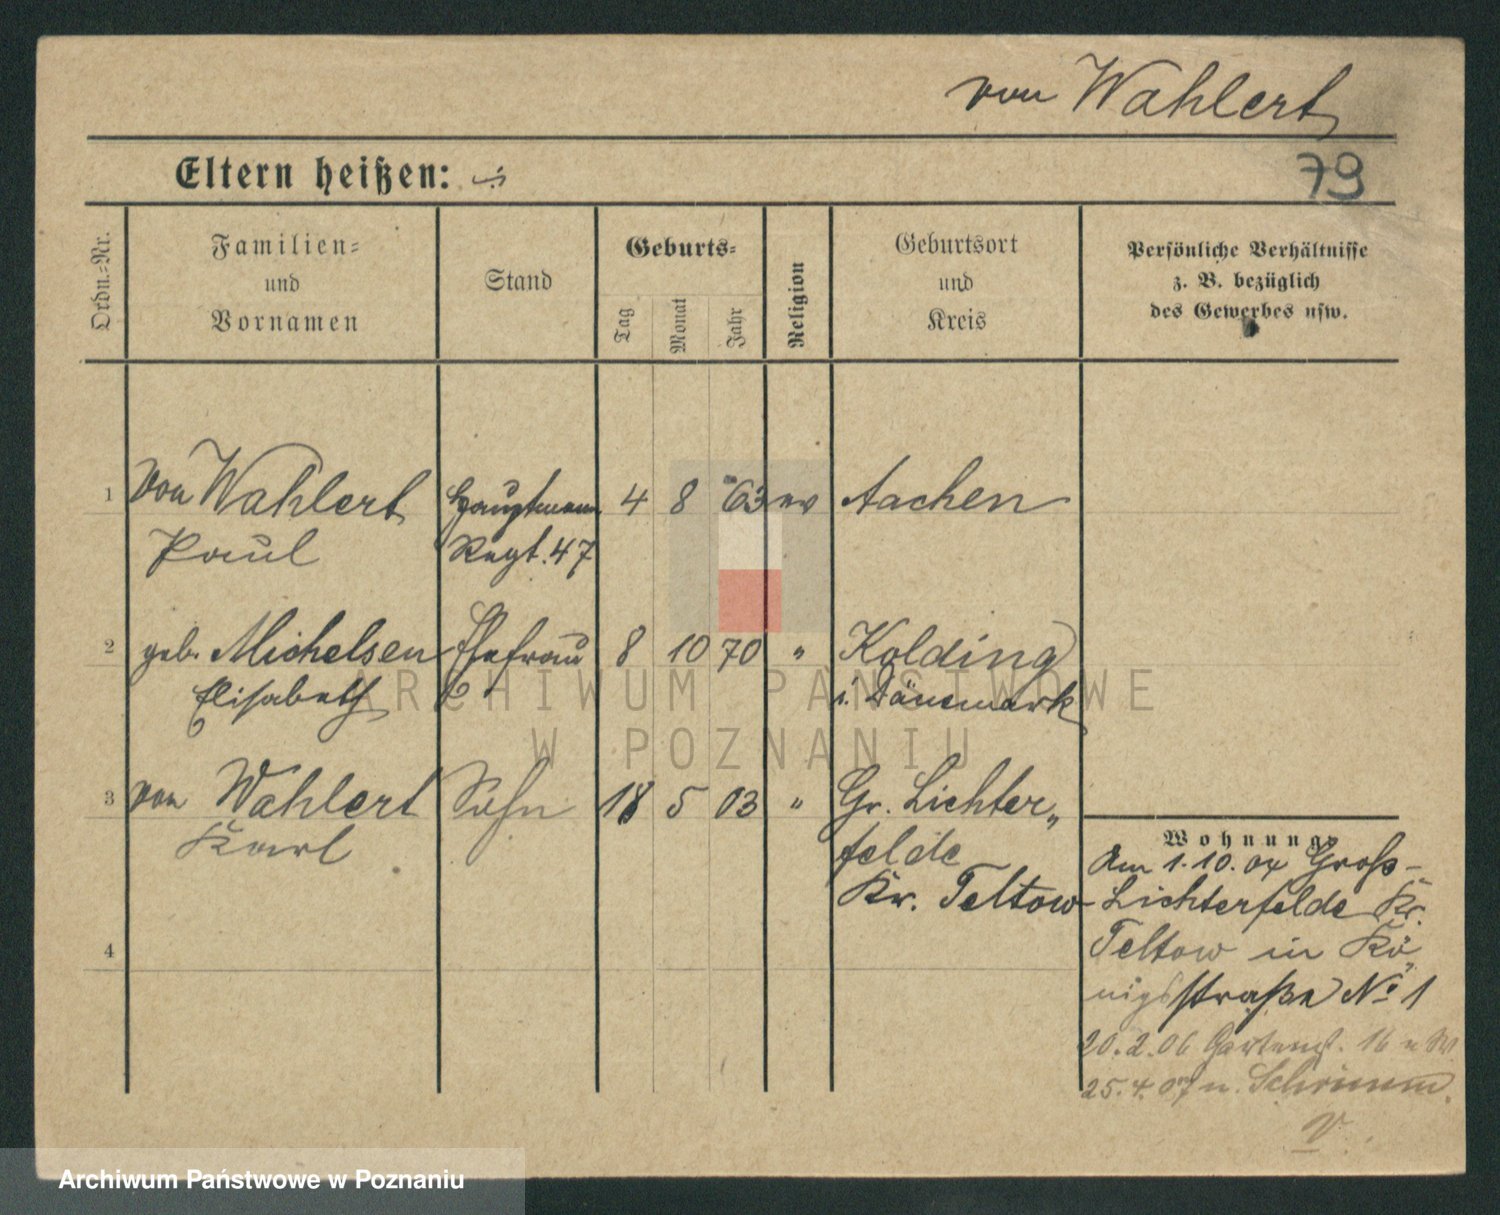 von Wahlert
79
Eltern heißen:
Ordn.=Nr.
Familien=
und
Vornamen
Stand
Geburts=
Tag
Monat
Jahr
Religion
Geburtsort
und
Kreis
Persönliche Verhältnisse
z. B. bezüglich
des Gewerbes usw.
1 von Wahlert Hauptmann 4 8 63 ev Aachen
Paul Regt. 47
2 geb. Michelsen Ehefrau 8 10 70 " Kolding
Elisabeth i. Dänemark
3 von Wahlert Sohn 18 5 03 " Gr. Lichter„
Karl felde
Kr. Teltow
4
Wohnung
Am 1.10.04 Groß-
Lichterfelde Kr.
Teltow in Kö„
nigsstraße No 1
20.2.06 Gartenst. 16
25.4.07 n. Schrimm
V.
ARCHIWUM PAŃSTWOWE
W POZNANIU
Archiwum Państwowe w Poznaniu